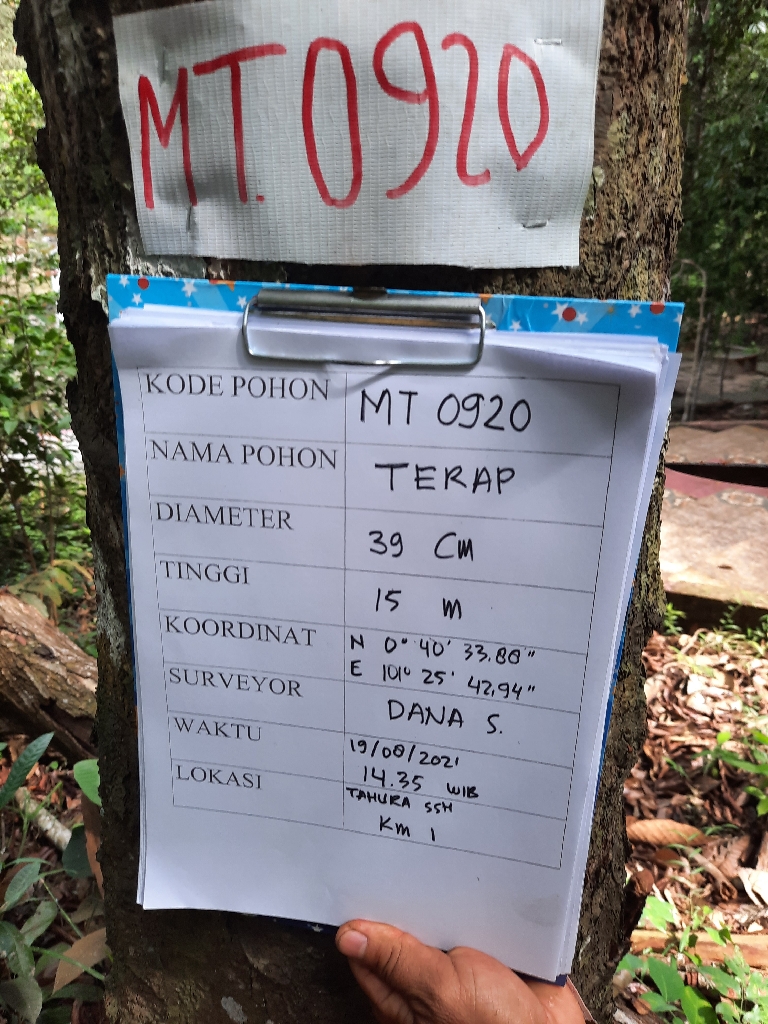 MT.0920
KODE POHON MT 0920
NAMA POHON TERAP
DIAMETER 39 Cm
TINGGI 15 m
KOORDINAT N 0° 40' 33,88"
E 101° 25' 42,94"
SURVEYOR DANA S.
WAKTU 19/08/2021
14.35 WIB
LOKASI TAHURA SSH
Km 1